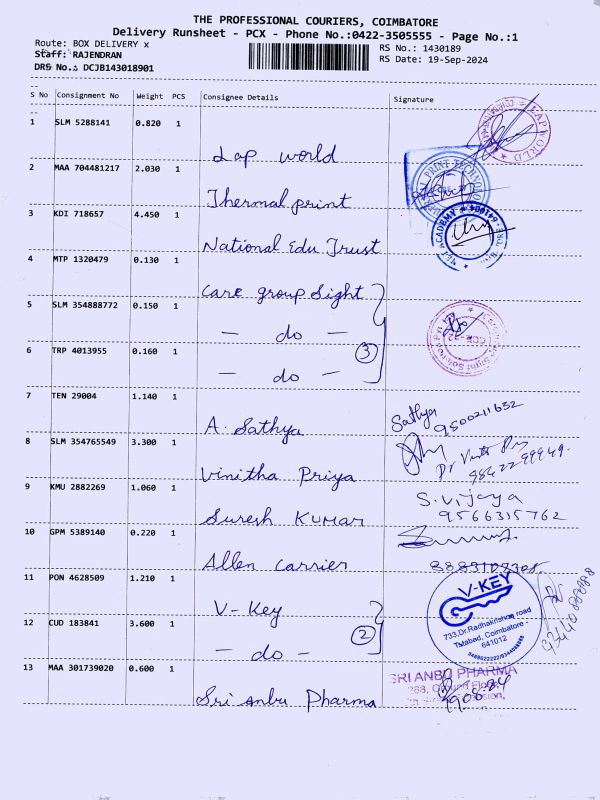 THE PROFESSIONAL COURIERS, COIMBATORE
Delivery Runsheet - PCX - Phone No.:0422-3505555 - Page No.:1
Route: BOX DELIVERY x RS No.: 1430189
Staff: RAJENDRAN RS Date: 19-Sep-2024
DRS No.: DCJB143018901
S No Consignment No Weight PCS Consignee Details Signature
1 SLM 5288141 0.820 1
Lap world
LAP WORLD
2 MAA 704481217 2.030 1
Thermal print
3 KDI 718657 4.450 1
National Edu Trust
4 MTP 1320479 0.130 1
Care group Sight
5 SLM 354888772 0.150 1
— do —
6 TRP 4013955 0.160 1
3
— do —
7 TEN 29004 1.140 1
A. Sathya Sathya
9500211652
8 SLM 354765549 3.300 1
Vinitha Priya
9842299949.
9 KMU 2882269 1.060 1
Suresh Kumar S. Vijaya
9566315762
10 GPM 5389140 0.220 1
Allen Carrier
11 PON 4628509 1.210 1
V-Key V-KEY
733,Dr.Radhakrishnan road
Tatabad, Coimbatore -
641012
12 CUD 183841 3.600 1
2
— do —
13 MAA 301739020 0.600 1
Sri Anbu Pharma SRI ANBU PHARMA